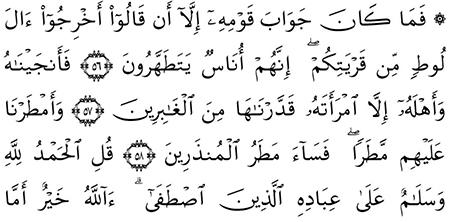 ۞ فَمَا كَانَ جَوَابَ قَوْمِهِۦٓ إِلَّآ أَن قَالُوٓا۟ أَخْرِجُوٓا۟ ءَالَ
لُوطٍ مِّن قَرْيَتِكُمْ ۖ إِنَّهُمْ أُنَاسٌ يَتَطَهَّرُونَ ﴿٥٦﴾ فَأَنجَيْنَـٰهُ
وَأَهْلَهُۥٓ إِلَّا ٱمْرَأَتَهُۥ قَدَّرْنَـٰهَا مِنَ ٱلْغَـٰبِرِينَ ﴿٥٧﴾ وَأَمْطَرْنَا
عَلَيْهِم مَّطَرًا ۖ فَسَآءَ مَطَرُ ٱلْمُنذَرِينَ ﴿٥٨﴾ قُلِ ٱلْحَمْدُ لِلَّهِ
وَسَلَـٰمٌ عَلَىٰ عِبَادِهِ ٱلَّذِينَ ٱصْطَفَىٰٓ ۗ ءَآللَّهُ خَيْرٌ أَمَّا